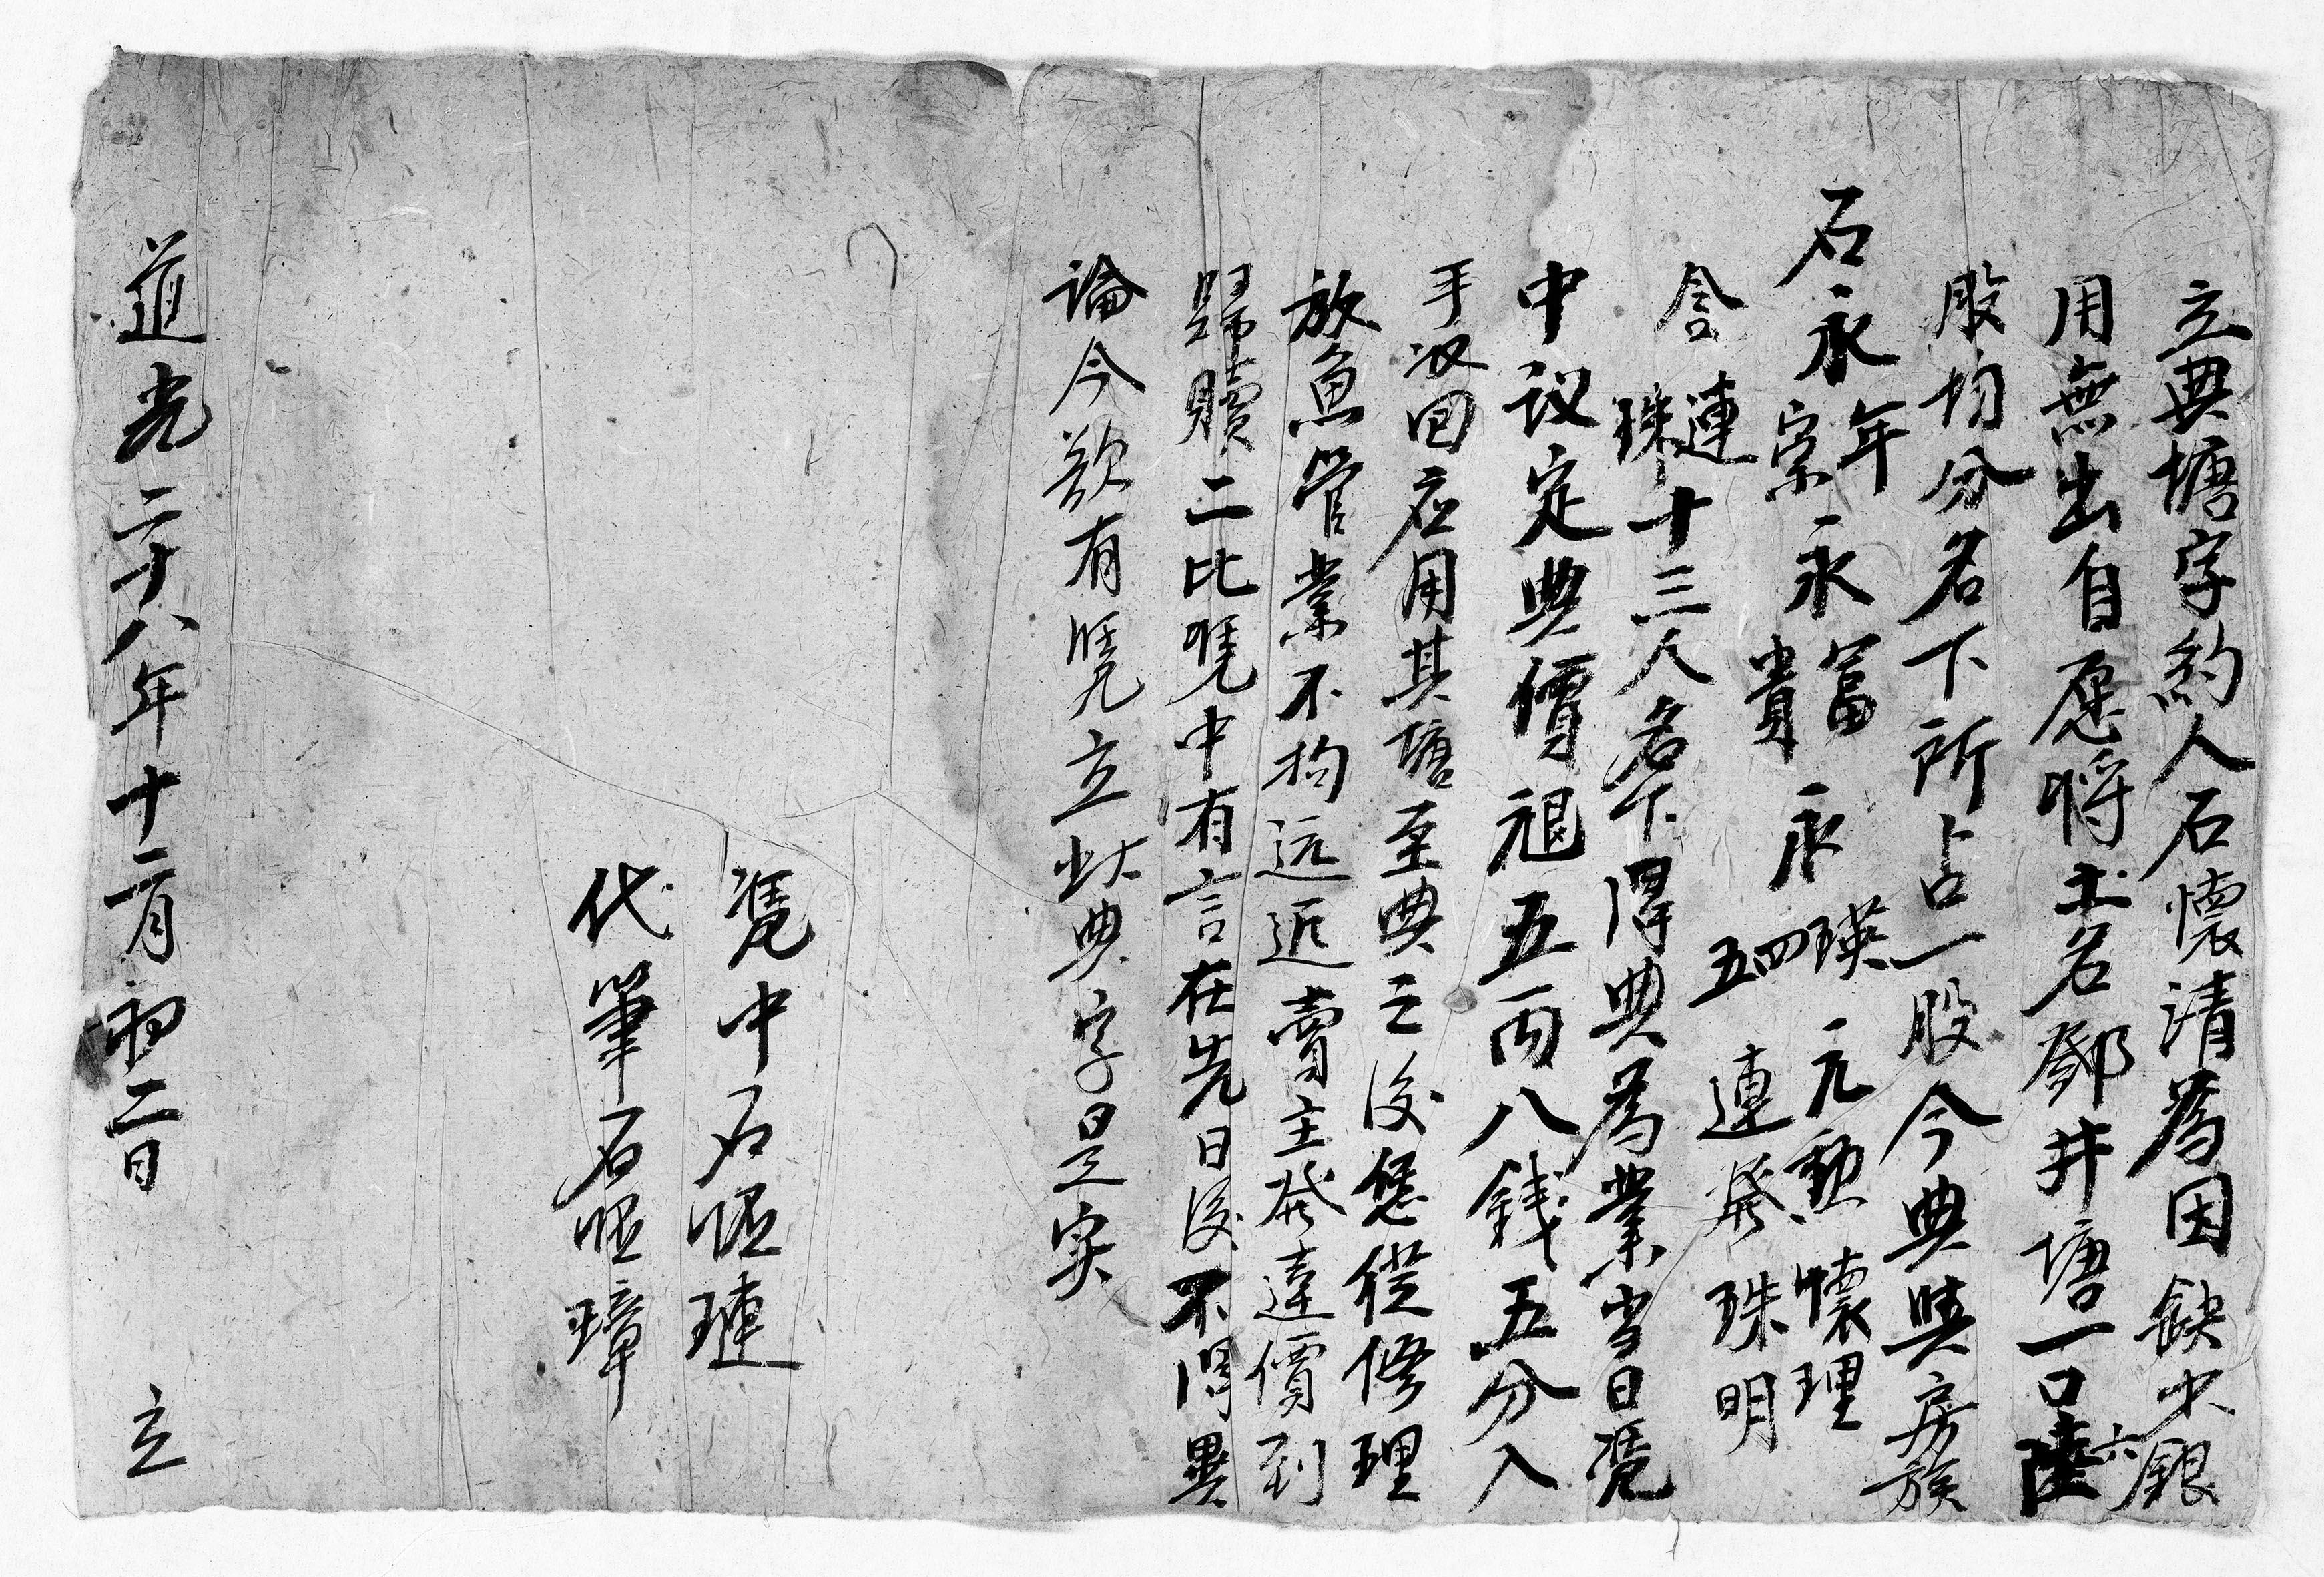 立典塘字約人石懷清為因缺少銀
用無出自愿将土名鄧井塘一口陸六
股均分名下所占一股今典與房族
石永年宗永富貴永瑛四五元勲懷理
連發珠明
舍連珠十三人名下得典為業当日凭
中议定典價祖五両八錢五分入
手収回应用其塘至典之後恁從修理
放魚管業不拘远近賣主發達價到
歸贖二比凭中有言在先日後不得異
論今欲有凭立此典字是实
凭中石恒璉
代筆石恒璋
道光二十八年十二月初二日立